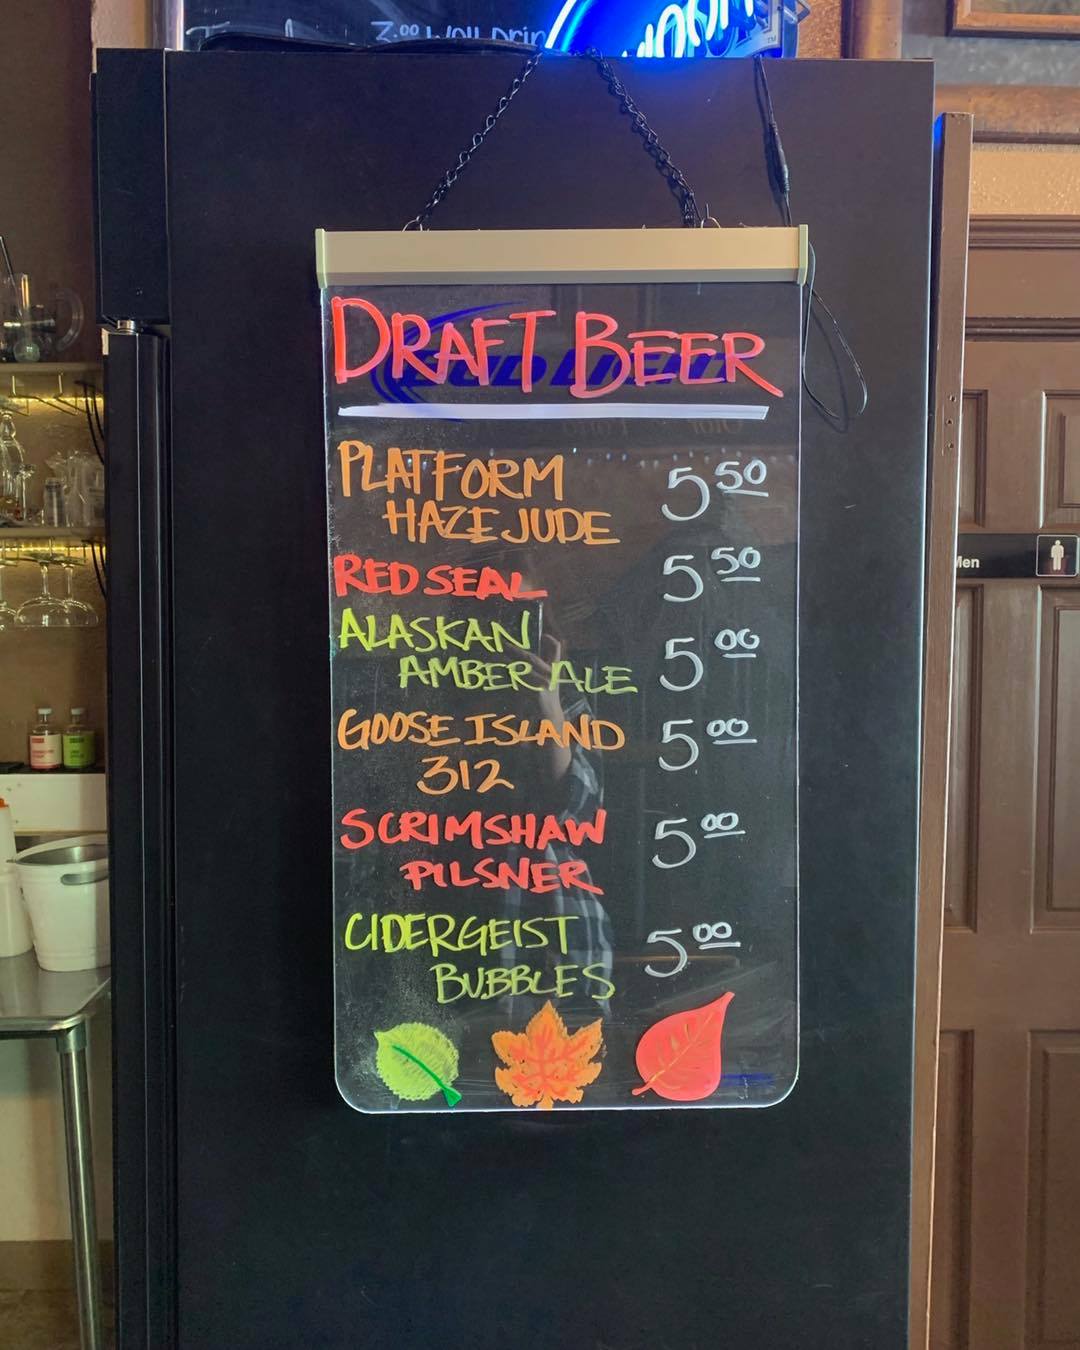 3.00 Well Drin
DRAFT BEER
BUD LIGHT
PLATFORM 5 50
HAZE JUDE
RED SEAL 5 50
ALASKAN
AMBER ALE 5 00
GOOSE ISLAND 5 00
312
SCRIMSHAW 5 00
PILSNER
CIDERGEIST 5 00
BUBBLES
Men